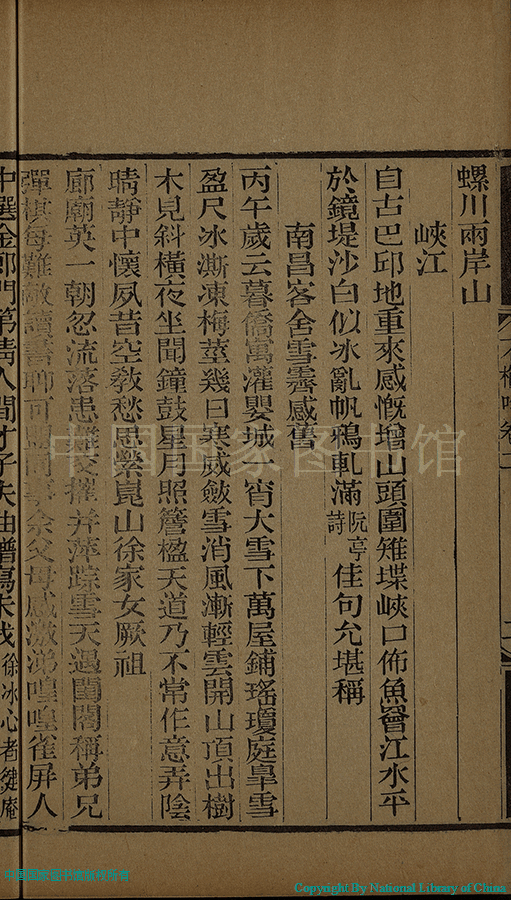 螺川兩岸山
峽江
自古巴邱地重來感慨增山頭圍雉堞峽口佈魚罾江水平
於鏡堤沙白似冰亂帆鴉軋滿阮亭詩佳句允堪稱
南昌客舍雪霽感舊
丙午歲云暮僑寓灌嬰城一宵大雪下萬屋鋪瑤瓊庭臯雪
盈尺冰澌凍梅莖幾日寒威斂雪消風漸輕雲開山頂出樹
木見斜橫夜坐聞鐘鼓星月照簷楹天道乃不常作意弄陰
晴靜中懷夙昔空教愁思縈崑山徐家女厥祖
廊廟英一朝忽流落患難交摧并萍踪雪天遇閨閣稱弟兄
彈棋每難敵讀書聊可盟余父母感激涕喤喤雀屏人
中選金郎門第淸人間才子夫曲譜寫未成徐冰心者健庵
中国国家图书馆
Copyright By National Library of China